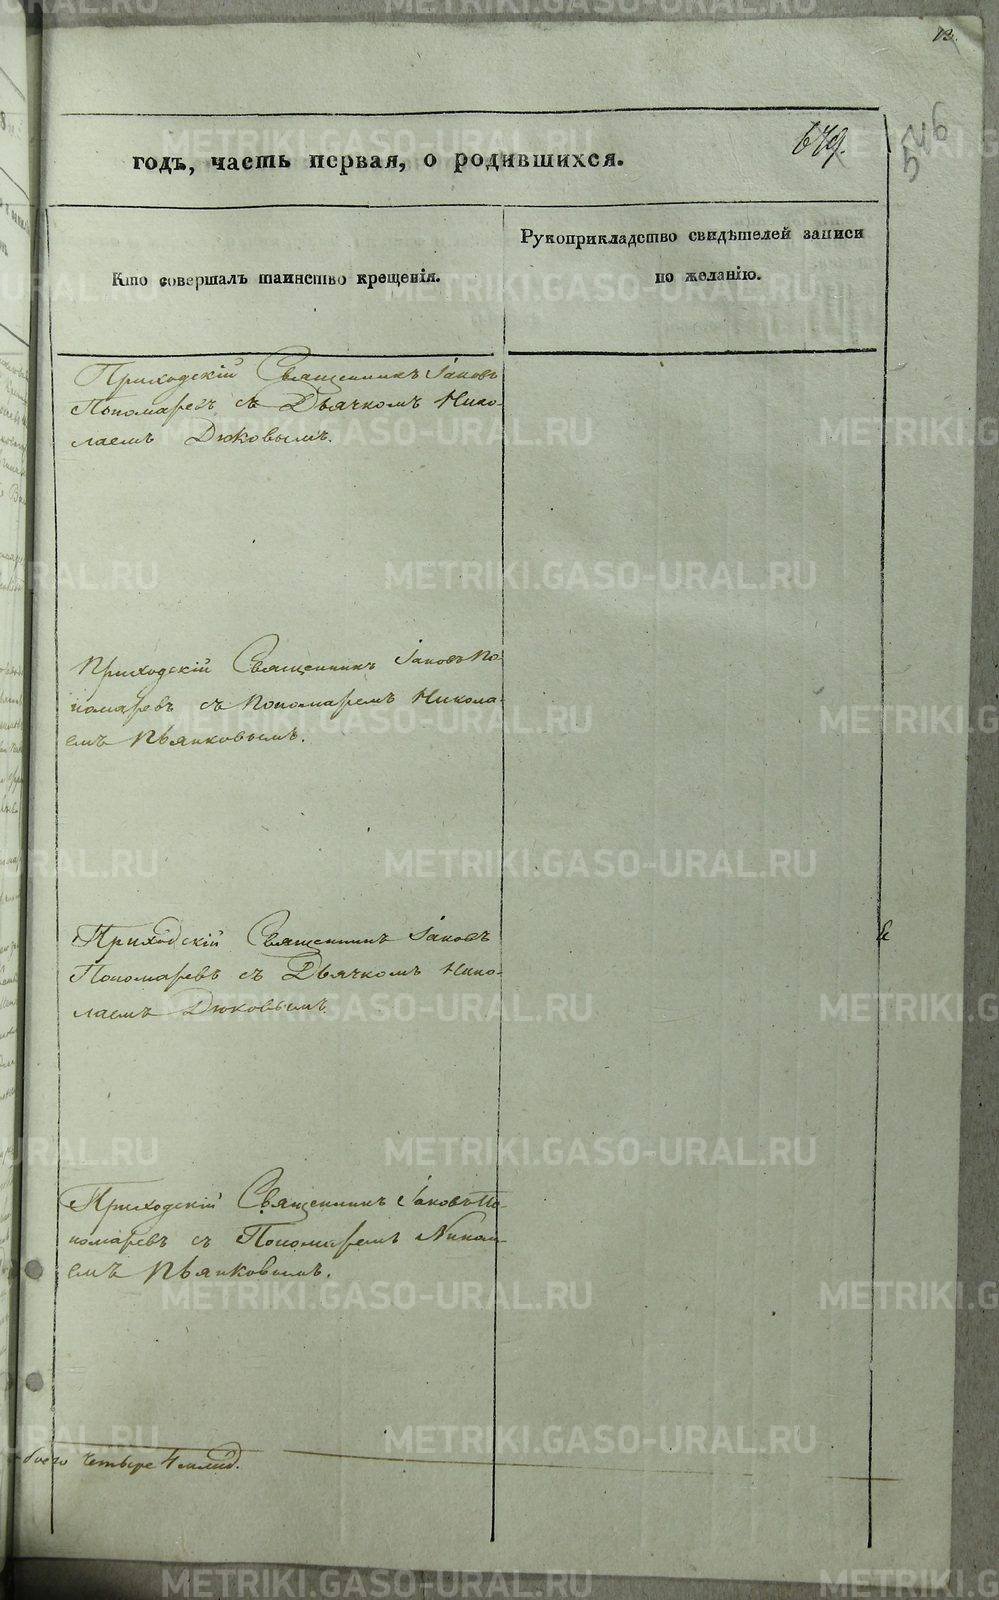 13.
679.
546
годъ, часть первая, о родившихся.
Кто совершалъ таинство крещенія.
Рукоприкладство свидѣтелей записи
по желанію.
Приходскій Священникъ Іаковъ
Пономаревъ съ Дьячкомъ Нико-
лаемъ Дюковымъ.
Приходскій Священникъ Іаковъ По-
номаревъ съ Пономаремъ Никола-
емъ Пьянковымъ.
Приходскій Священникъ Іаковъ
Пономаревъ съ Дьячкомъ Нико-
лаемъ Дюковымъ.
Приходскій Священникъ Іаковъ По-
номаревъ съ Пономаремъ Никола-
емъ Пьянковымъ.
четыре 4
METRIKI.GASO-URAL.RU